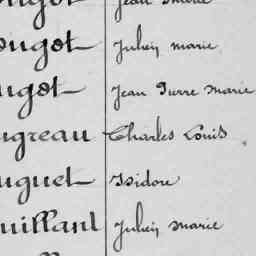 ougot Julien marie
ugot Jean Pierre Marie
ugreau Charles Louis
uguet Isidore
uillant Julien Marie